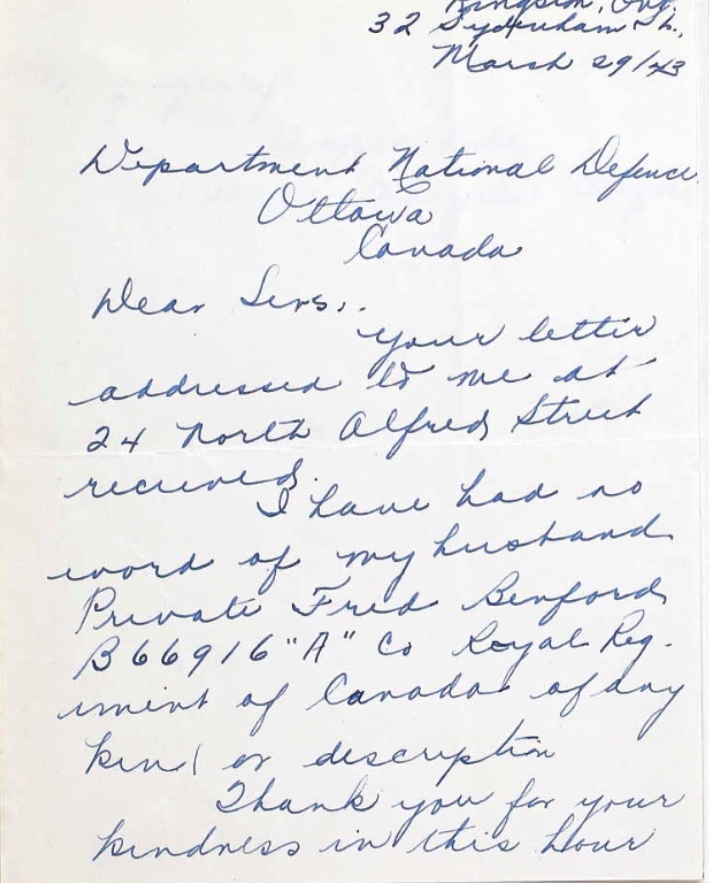 Kingston, Ont.
32 Sydenham St.,
March 29/43
Department National Defence
Ottawa
Canada
Dear Sirs,.
Your letter
addressed to me at
24 North Alfred Street
recieved.
I have had no
word of my husband
Private Fred Benford
B66916 "A" Co Royal Reg-
iment of Canada of any
kind or description
Thank you for your
kindness in this hour